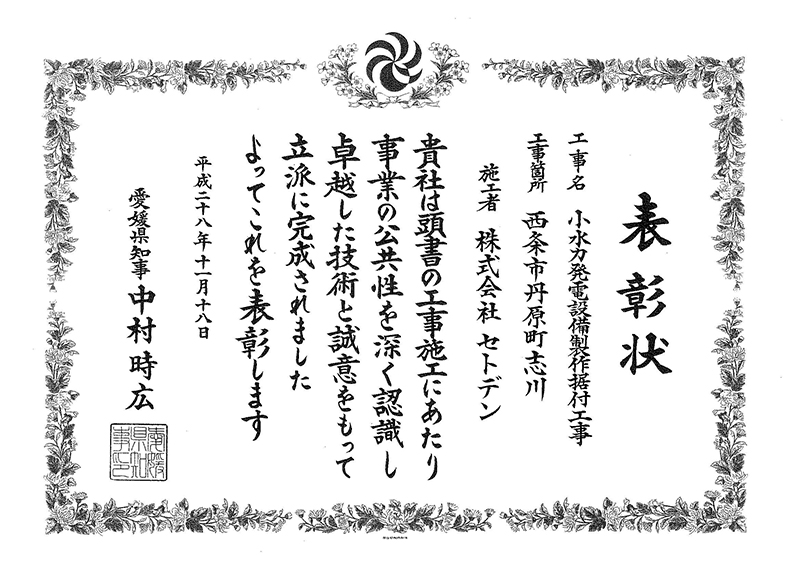 表彰状
工事名 小水力発電設備製作据付工事
工事箇所 西条市丹原町志川
施工者 株式会社 セトデン
貴社は頭書の工事施工にあたり
事業の公共性を深く認識し
卓越した技術と誠意をもって
立派に完成されました
よってこれを表彰します
平成二十八年十一月十八日
愛媛県知事 中村時広
愛媛
県知
事印